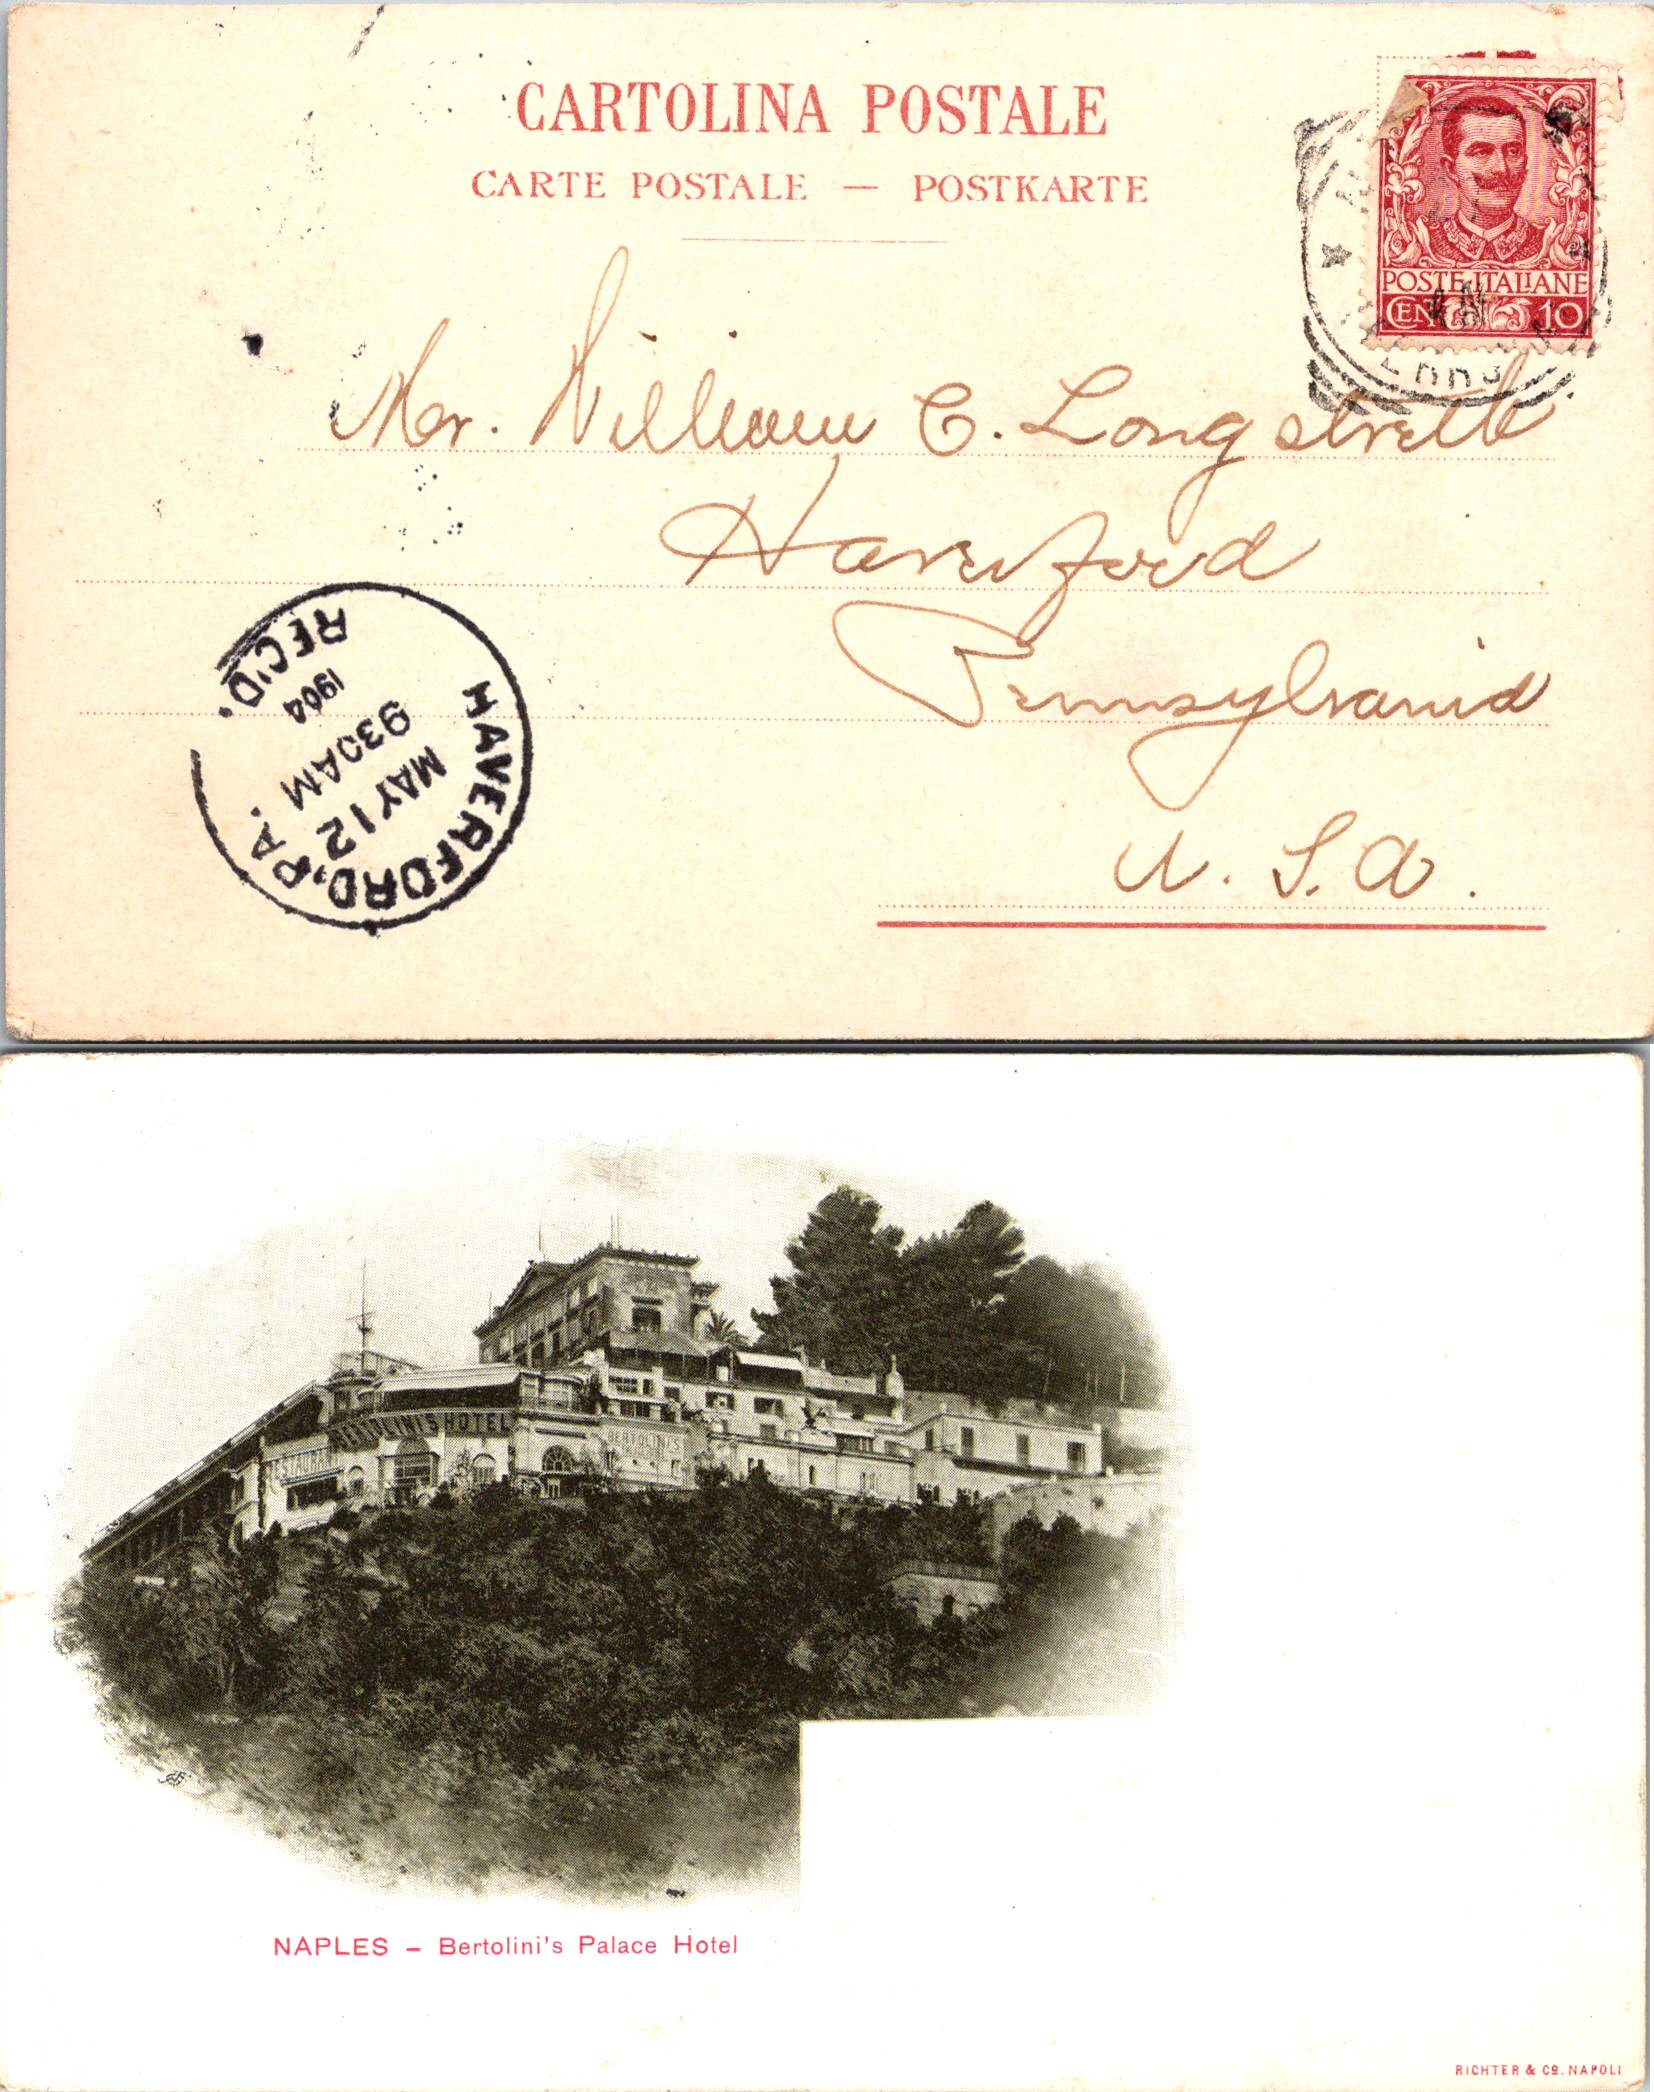 CARTOLINA POSTALE
CARTE POSTALE — POSTKARTE
POSTE ITALIANE
CEN 10
Mr. William C. Longstreth
Haverford
Pennsylvania
U. S. A.
HAVERFORD, PA.
MAY 12
930AM
1904
REC'D.
RESTAURANT
BERTOLINI'S HOTEL
BERTOLINI'S
NAPLES – Bertolini's Palace Hotel
RICHTER & Co. NAPOLI